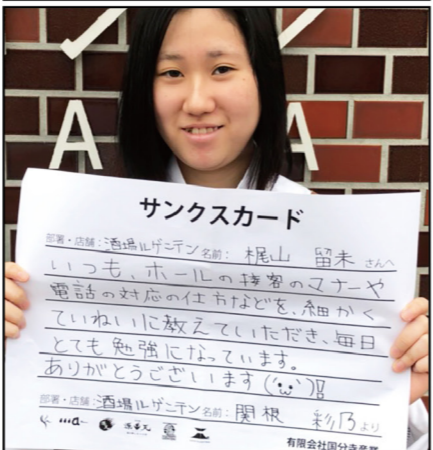 A
A
サンクスカード
部署・店舗：酒場ルゲニテン 名前：梶山 留未 さんへ
いつも、ホールの接客のマナーや
電話の対応の仕方などを、細かく
ていねいに教えていただき、毎日
とても勉強になっています。
ありがとうございます(´ω`)!!
部署・店舗：酒場ルゲニテン 名前：関根 彩乃 より
有限会社国分寺産業